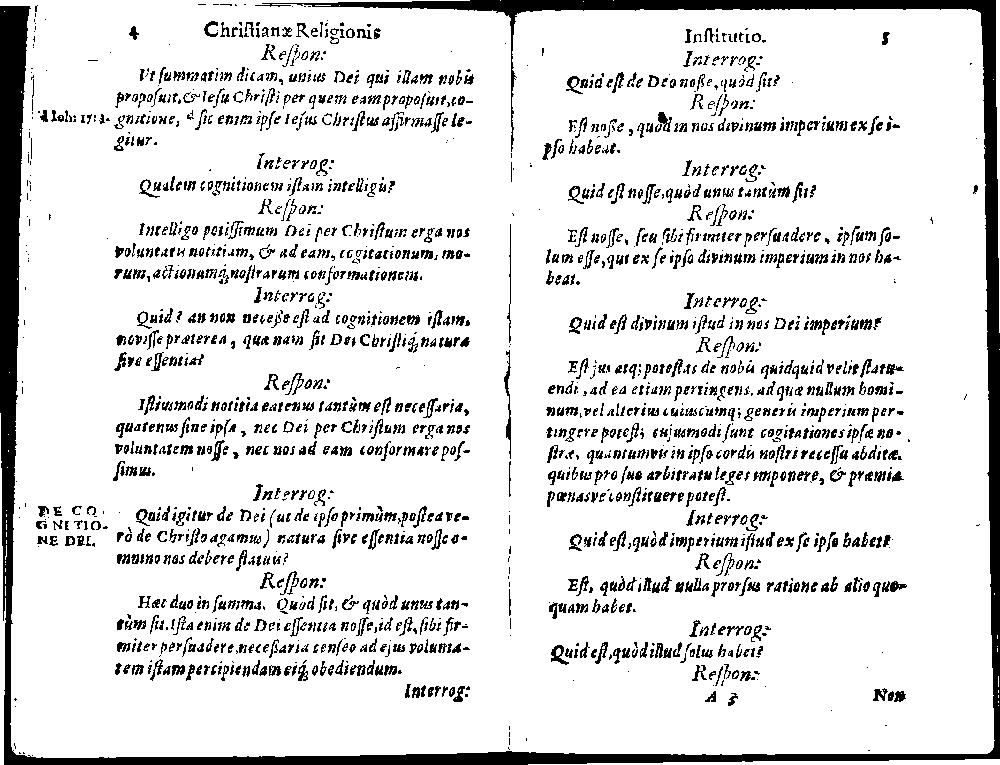 4 Christianæ Religionis
Respon:
Ut summatim dicam, unius Dei qui illam nobis
proposuit, & Iesu Christi per quem eam proposuit, co-
d Ioh: 17:3. gnitione, d sic enim ipse Iesus Christus affirmasse le-
gitur.
Interrog:
Qualem cognitionem istam intelligis?
Respon:
Intelligo potissimum Dei per Christum erga nos
voluntatis notitiam, & ad eam, cogitationum, mo-
rum, actionumq; nostrarum conformationem.
Interrog:
Quid? an non necesse est ad cognitionem istam,
novisse præterea, quænam sit Dei Christiq; natura
sive essentia?
Respon:
Istiusmodi notitia eatenus tantùm est necessaria,
quatenus sine ipsa, nec Dei per Christum erga nos
voluntatem nosse, nec nos ad eam conformare pos-
simus.
Interrog:
DE CO-
GNITIO-
NE DEI.
Quid igitur de Dei (ut de ipso primùm, postea ve-
rò de Christo agamus) natura sive essentia nosse o-
mnino nos debere statuis?
Respon:
Hæc duo in summa. Quòd sit, & quòd unus tan-
tùm sit. Ista enim de Dei essentia nosse, id est, sibi fir-
miter persuadere, necessaria censeo ad ejus volunta-
tem istam percipiendam eiq; obediendum.
Interrog:
Institutio. 5
Interrog:
Quid est de Deo nosse, quòd sit?
Respon:
Est nosse, quòd in nos divinum imperium ex se i-
pso habeat.
Interrog:
Quid est nosse, quòd unus tantùm sit?
Respon:
Est nosse, seu sibi firmiter persuadere, ipsum so-
lum esse, qui ex se ipso divinum imperium in nos ha-
beat.
Interrog:
Quid est divinum istud in nos Dei imperium?
Respon:
Est jus atq; potestas de nobis quidquid velit statu-
endi, ad ea etiam pertingens, ad quæ nullum homi-
num, vel alterius cuiuscumq; generis imperium per-
tingere potest; cujusmodi sunt cogitationes ipsæ no-
stræ, quantumvis in ipso cordis nostri recessu abditæ,
quibus pro suo arbitratu leges imponere, & præmia
pœnasve constituere potest.
Interrog:
Quid est, quòd imperium istud ex se ipso habet?
Respon:
Est, quòd illud nulla prorsus ratione ab alio quo-
quam habet.
Interrog:
Quid est, quòd illud solus habet?
Respon:
A 3 Non